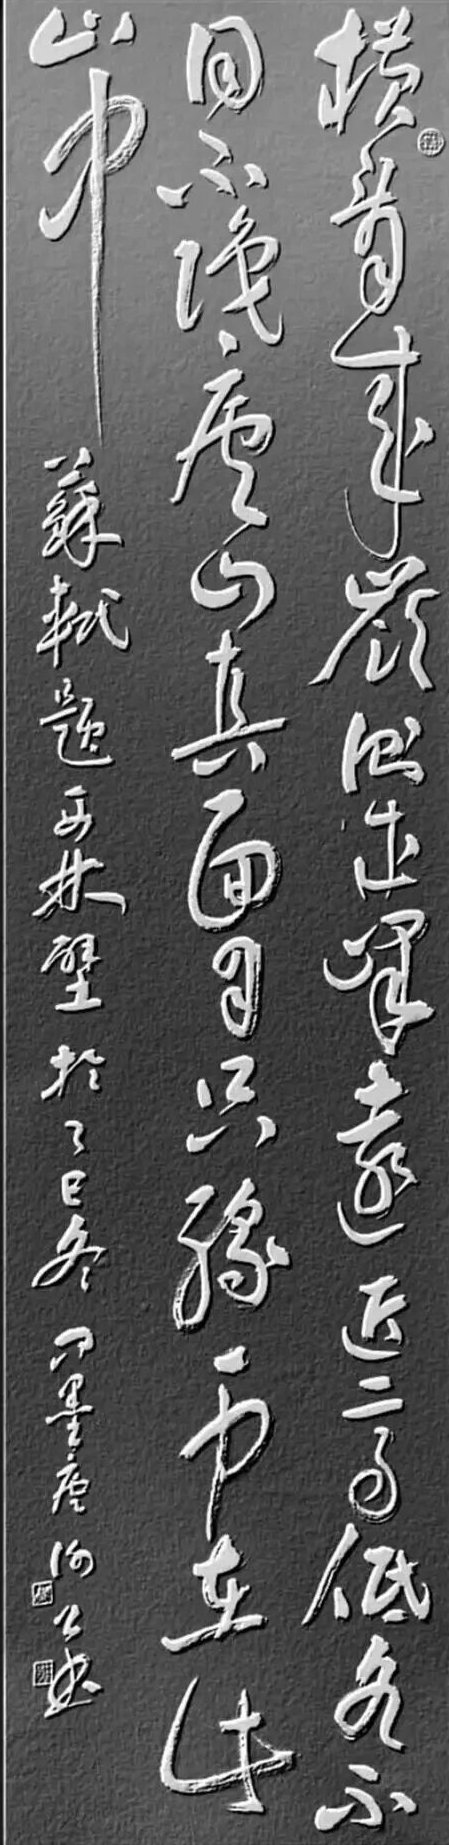 橫看成嶺側成峰遠近高低各不
同不識廬山真面目只緣身在此
山中 蘇軾題西林壁 於乙巳冬 墨廬 書